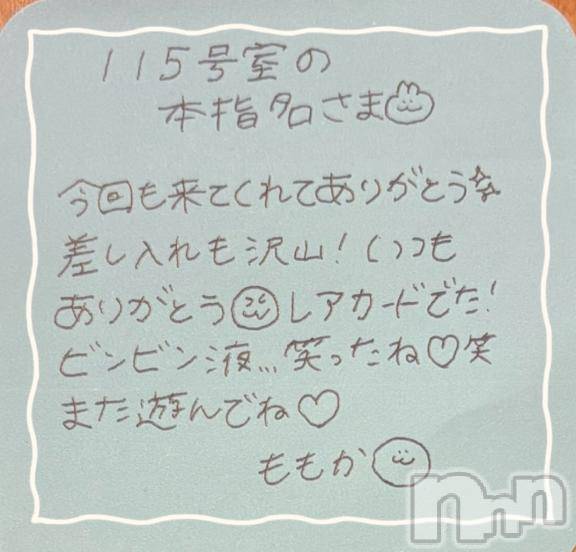 115号室の
本指名さま
今回も来てくれてありがとう
差し入れも沢山！いつも
ありがとう レアカードでた！
ビンビン液... 笑ったね♡笑
また遊んでね♡
ももか
nnn